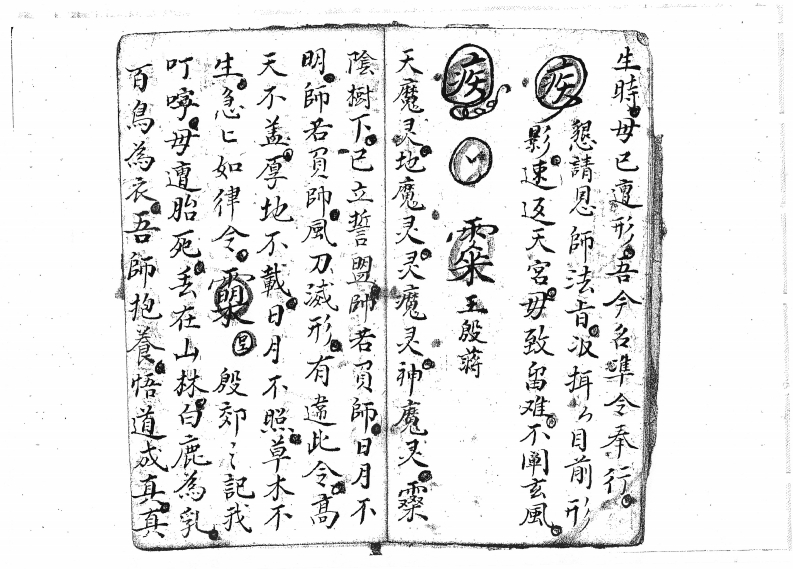 生時。毋已遭形。吾今名準令奉行。
懇請恩師法旨。汲揖々目前形
影。速返天宮。毋致留难。不闡玄風。
王 殷 蔣
天魔灵。地魔灵。灵魔灵。神魔灵。
陰樹下。已立誓盟師。若負師。日月不
明。師若負師。風刀滅形。有違此令。高
天不盖。厚地不載。日月不照。草木不
生。急匕如律令。 殷郊〻記我
叮嚀。毋遭胎死。丢在山林。白鹿為乳。
百鳥為衣。吾師抱養。悟道成真。真